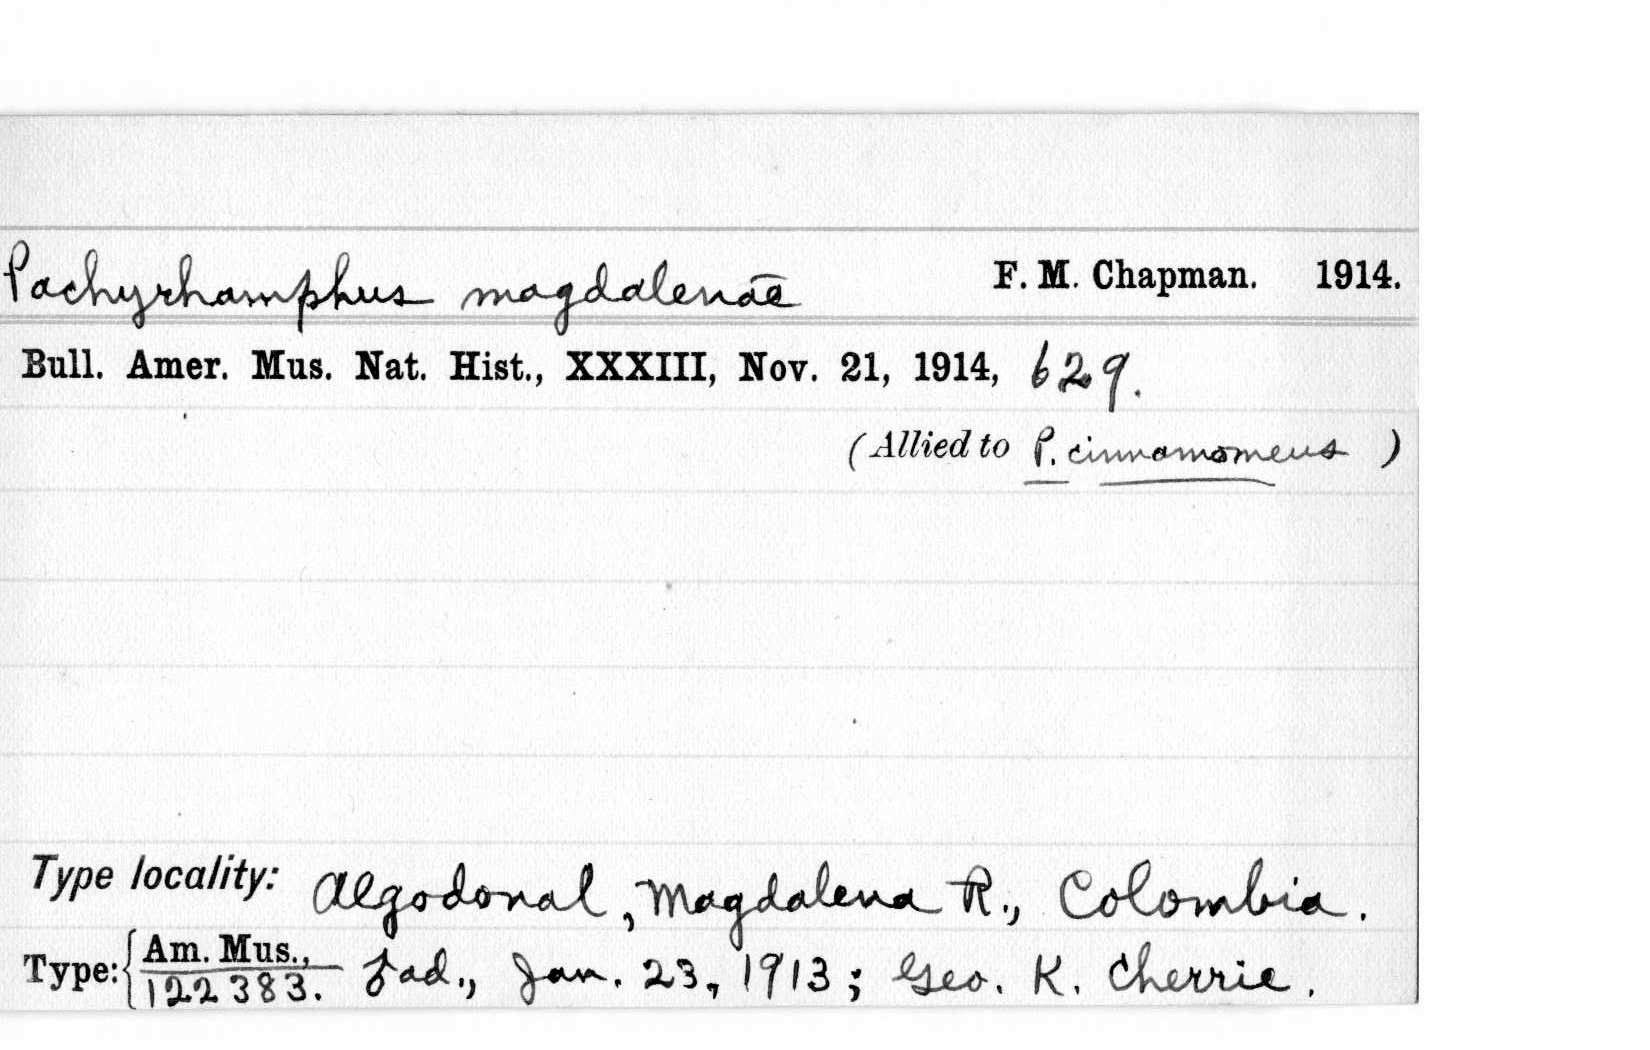 Pachyrhamphus magdalenae F. M. Chapman. 1914.
Bull. Amer. Mus. Nat. Hist., XXXIII, Nov. 21, 1914, 629.
(Allied to P. cinnamomeus )
Type locality: Algodonal, Magdalena R., Colombia.
Type: { Am. Mus., 122383. ♂ ad., Jan. 23, 1913; Geo. K. Cherrie.